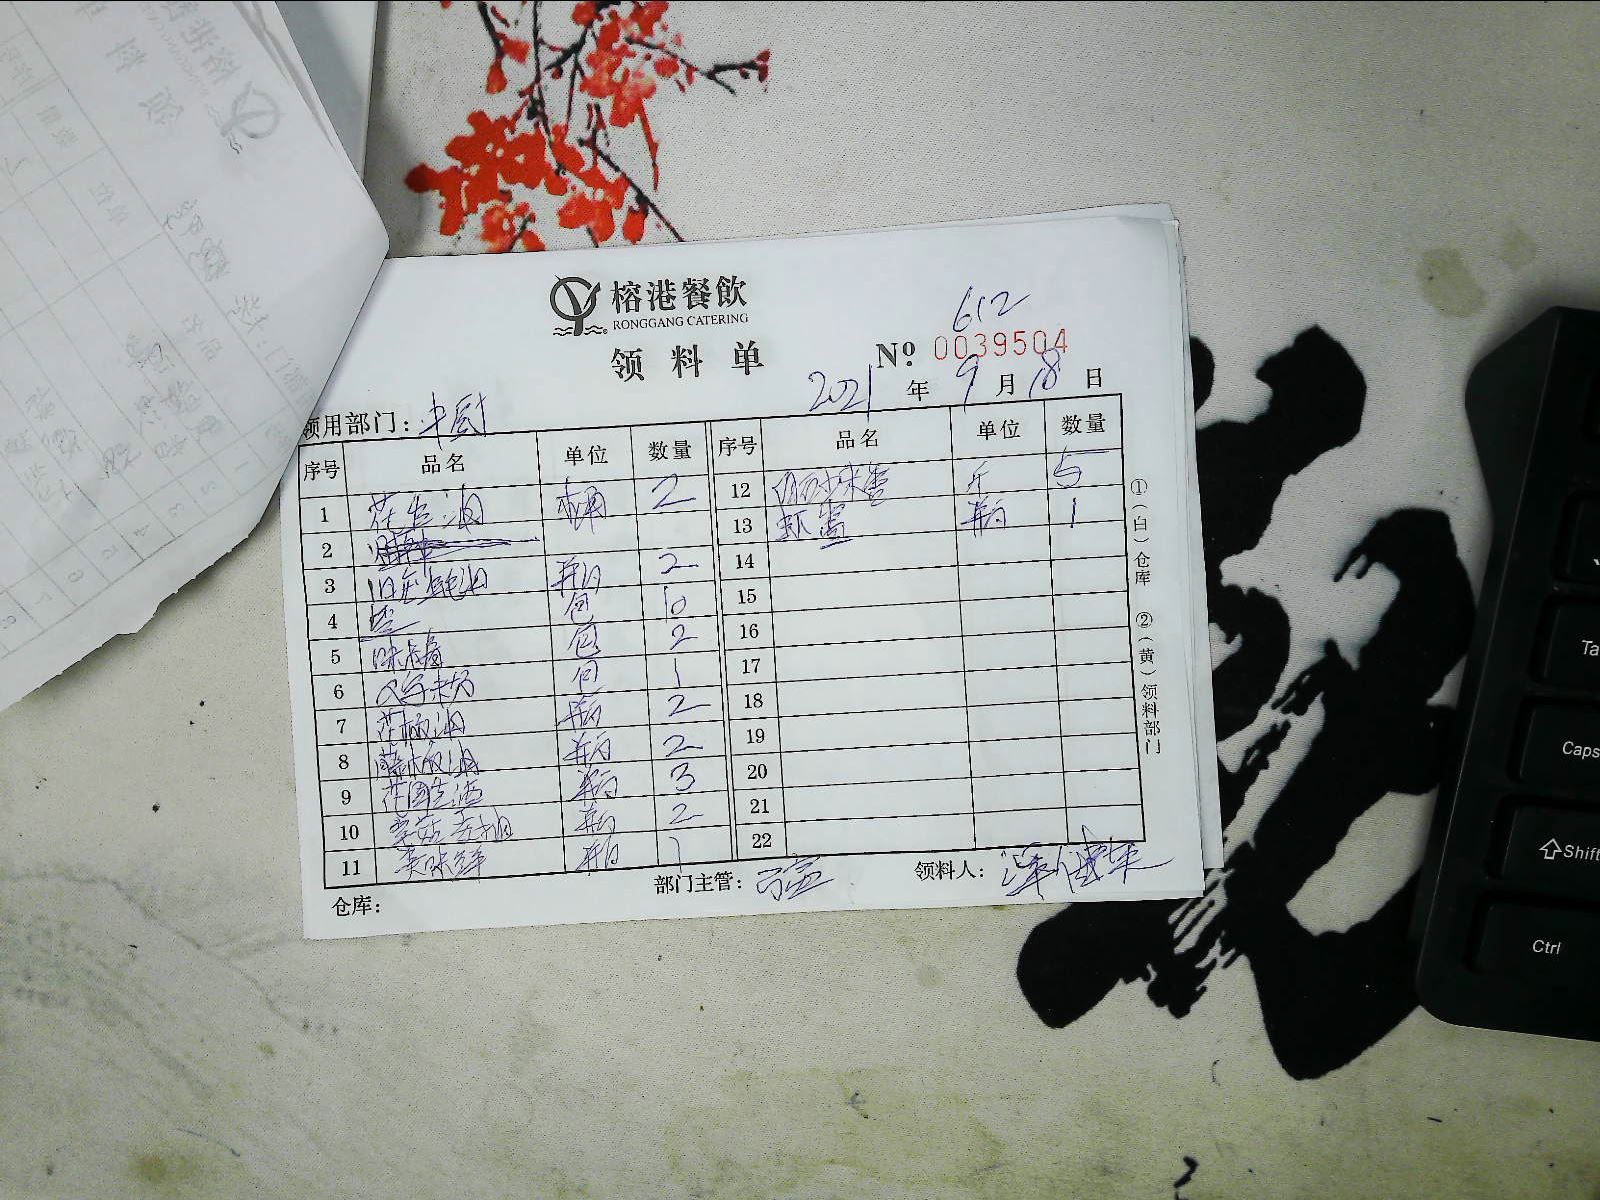 榕港餐飲
RONGGANG CATERING
领料单
612
Nº 0039504
2021 年 9 月 18 日
领用部门：中厨
序号 品名 单位 数量 序号 品名 单位 数量
1 花生油 桶 2
2
3 旧庄蚝油 瓶 2
4 盐 包 10
5 味 包 2
6 包 1
7 花椒油 瓶 2
8 藤椒油 瓶 2
9 花雕酒 瓶 3
10 草菇老抽 瓶 2
11 美味鲜 瓶 1
12 斤 5
13 虾酱 瓶 1
14
15
16
17
18
19
20
21
22
①（白）仓库 ②（黄）领料部门
仓库： 部门主管： 领料人：
Ta
Caps
Shift
Ctrl